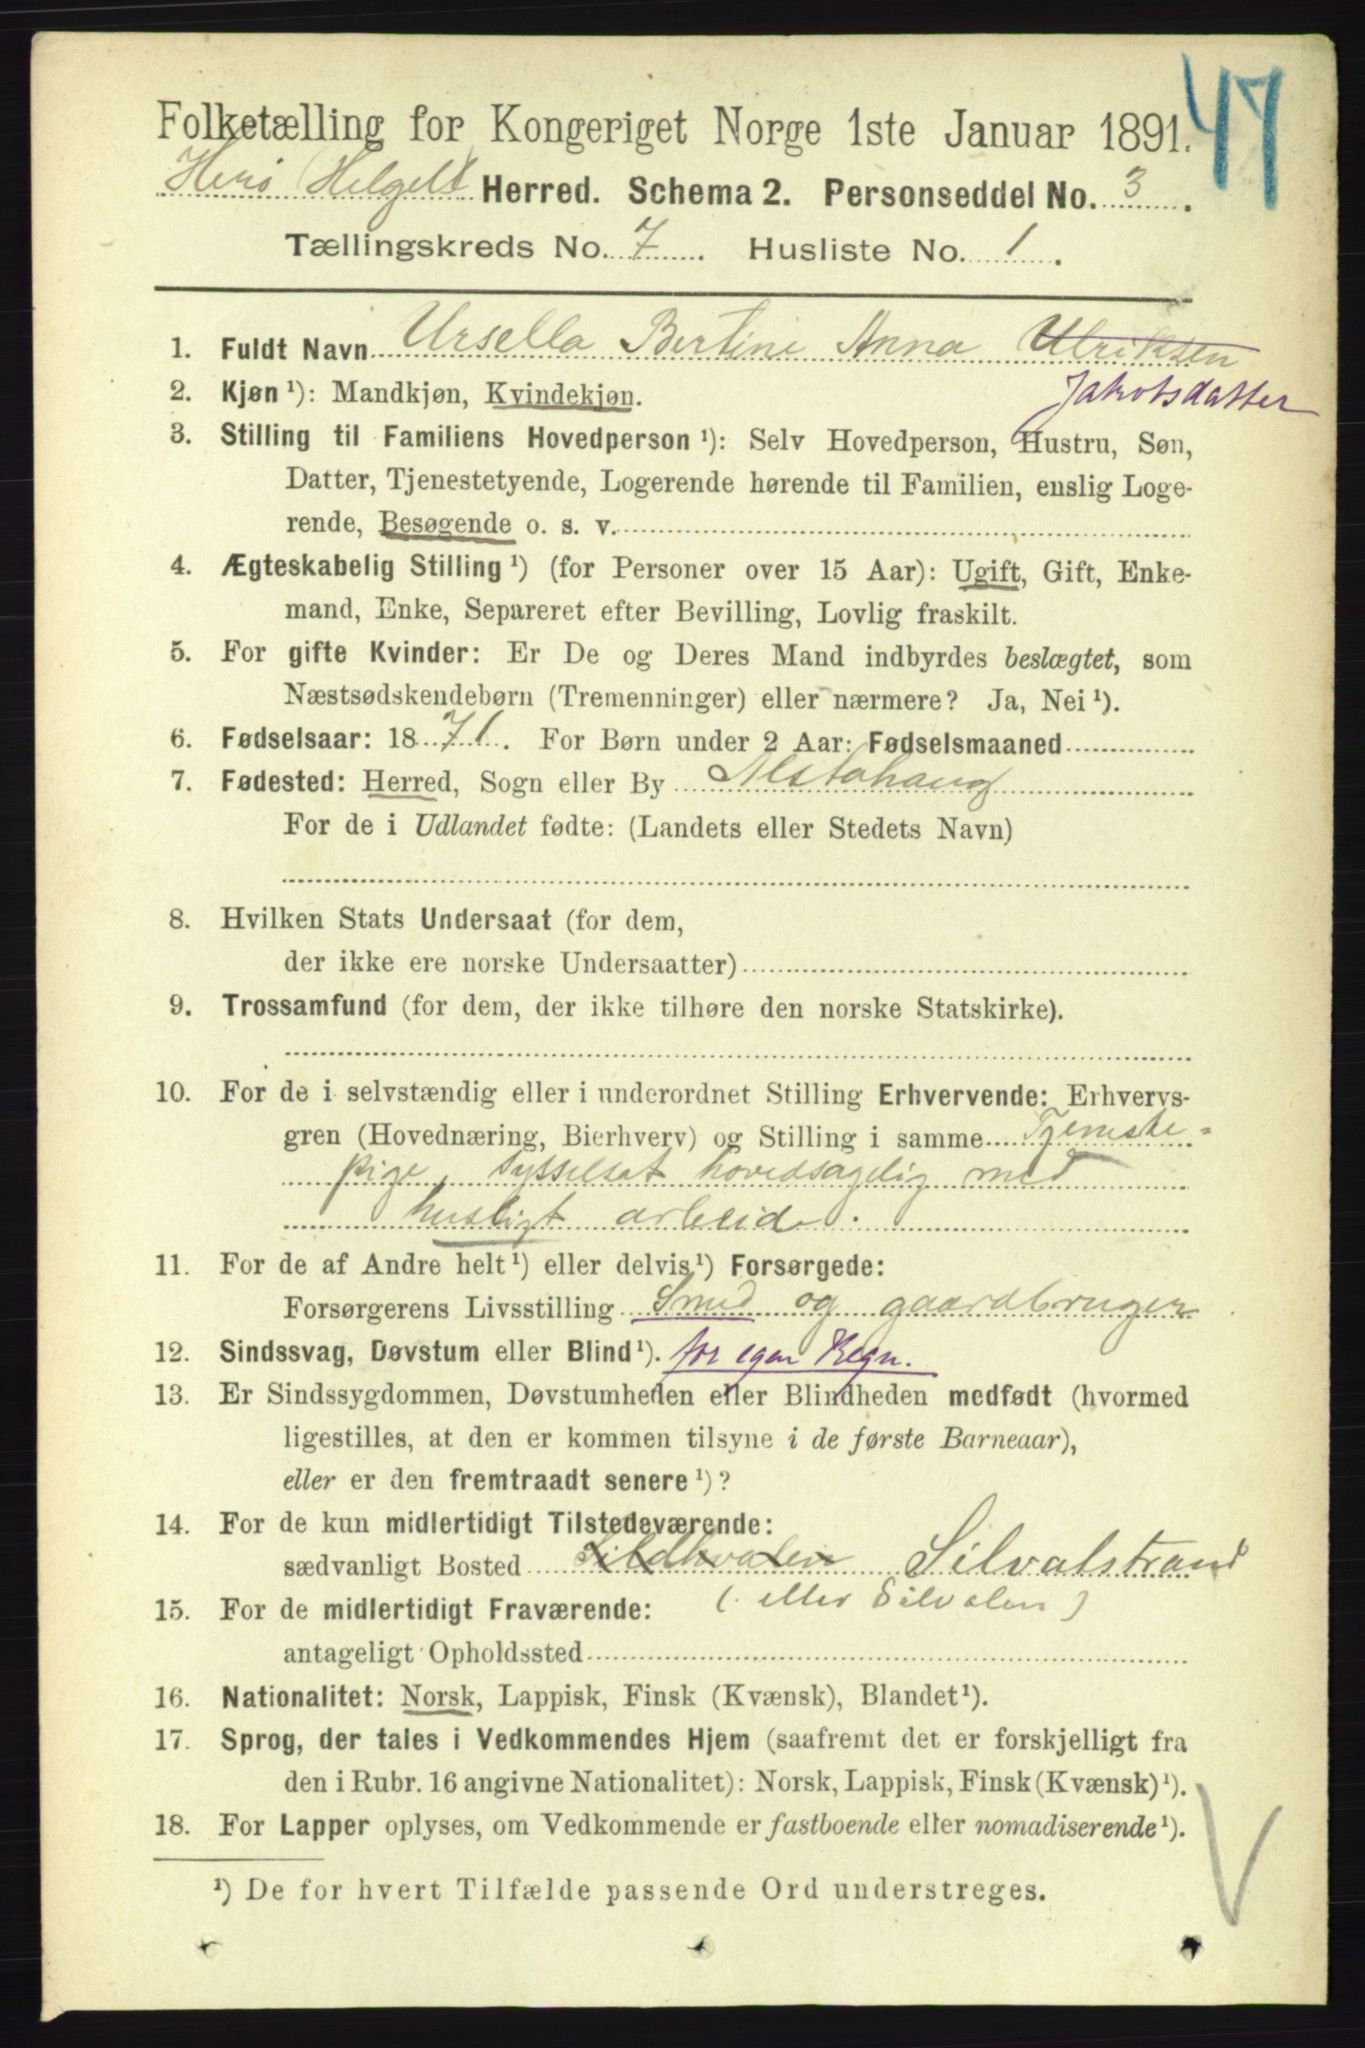 47
Folketælling for Kongeriget Norge 1ste Januar 1891.
Herø Helgeld Herred. Schema 2. Personseddel No. 3.
Tællingskreds No. 7. Husliste No. 1.
1. Fuldt Navn Ursella Bertine Anna Ulriksen
2. Kjøn ¹): Mandkjøn, Kvindekjøn. Jakobsdatter
3. Stilling til Familiens Hovedperson ¹): Selv Hovedperson, Hustru, Søn,
Datter, Tjenestetyende, Logerende hørende til Familien, enslig Loge-
rende, Besøgende o. s. v.
4. Ægteskabelig Stilling ¹) (for Personer over 15 Aar): Ugift, Gift, Enke-
mand, Enke, Separeret efter Bevilling, Lovlig fraskilt.
5. For gifte Kvinder: Er De og Deres Mand indbyrdes beslægtet, som
Næstsødskendebørn (Tremenninger) eller nærmere? Ja, Nei ¹).
6. Fødselsaar: 1871. For Børn under 2 Aar: Fødselsmaaned
7. Fødested: Herred, Sogn eller By Alstahaug
For de i Udlandet fødte: (Landets eller Stedets Navn)
8. Hvilken Stats Undersaat (for dem,
der ikke ere norske Undersaatter)
9. Trossamfund (for dem, der ikke tilhøre den norske Statskirke).
10. For de i selvstændig eller i underordnet Stilling Erhvervende: Erhvervs-
gren (Hovednæring, Bierhverv) og Stilling i samme Tjeneste-
pige, sysselsat hovedsagelig med
husligt arbeide.
11. For de af Andre helt ¹) eller delvis ¹) Forsørgede:
Forsørgerens Livsstilling Smed og gaardbruger
12. Sindssvag, Døvstum eller Blind ¹). for egen Regn.
13. Er Sindssygdommen, Døvstumheden eller Blindheden medfødt (hvormed
ligestilles, at den er kommen tilsyne i de første Barneaar),
eller er den fremtraadt senere ¹)?
14. For de kun midlertidigt Tilstedeværende:
sædvanligt Bosted Sildhvalen Silvalstrand
15. For de midlertidigt Fraværende: (. eller Silvalen)
antageligt Opholdssted
16. Nationalitet: Norsk, Lappisk, Finsk (Kvænsk), Blandet ¹).
17. Sprog, der tales i Vedkommendes Hjem (saafremt det er forskjelligt fra
den i Rubr. 16 angivne Nationalitet): Norsk, Lappisk, Finsk (Kvænsk) ¹).
18. For Lapper oplyses, om Vedkommende er fastboende eller nomadiserende ¹).
¹) De for hvert Tilfælde passende Ord understreges.